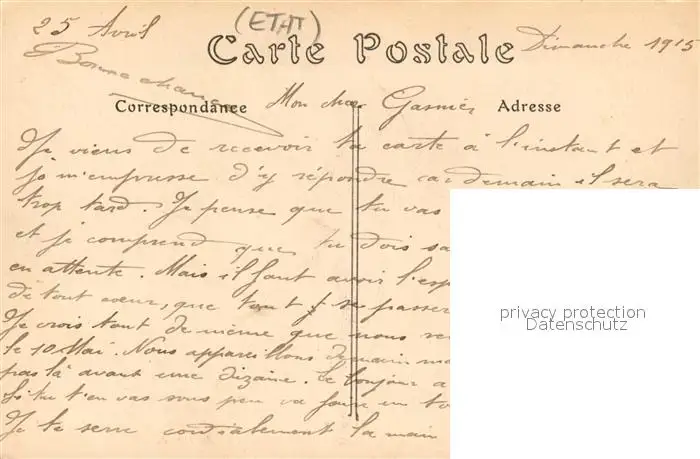 (ETAT)
25 Avril
Dimanche 1915
Bonne chance
Carte Postale
Correspondance
Adresse
Mon cher Gasnier
Je viens de recevoir ta carte à l'instant et
je m'empresse d'y répondre car demain il sera
trop tard. Je pense que tu vas
et je comprends que tu dois
en attente. Mais il faut avoir
de tout cœur, que tout se passera
Je crois tout de même que nous
le 10 Mai. Nous appareillons demain
pas là avant une dizaine. Le bonjour a
Si tu t'en vas sous peu va faire un
Je te serre cordialement la main
privacy protection
Datenschutz